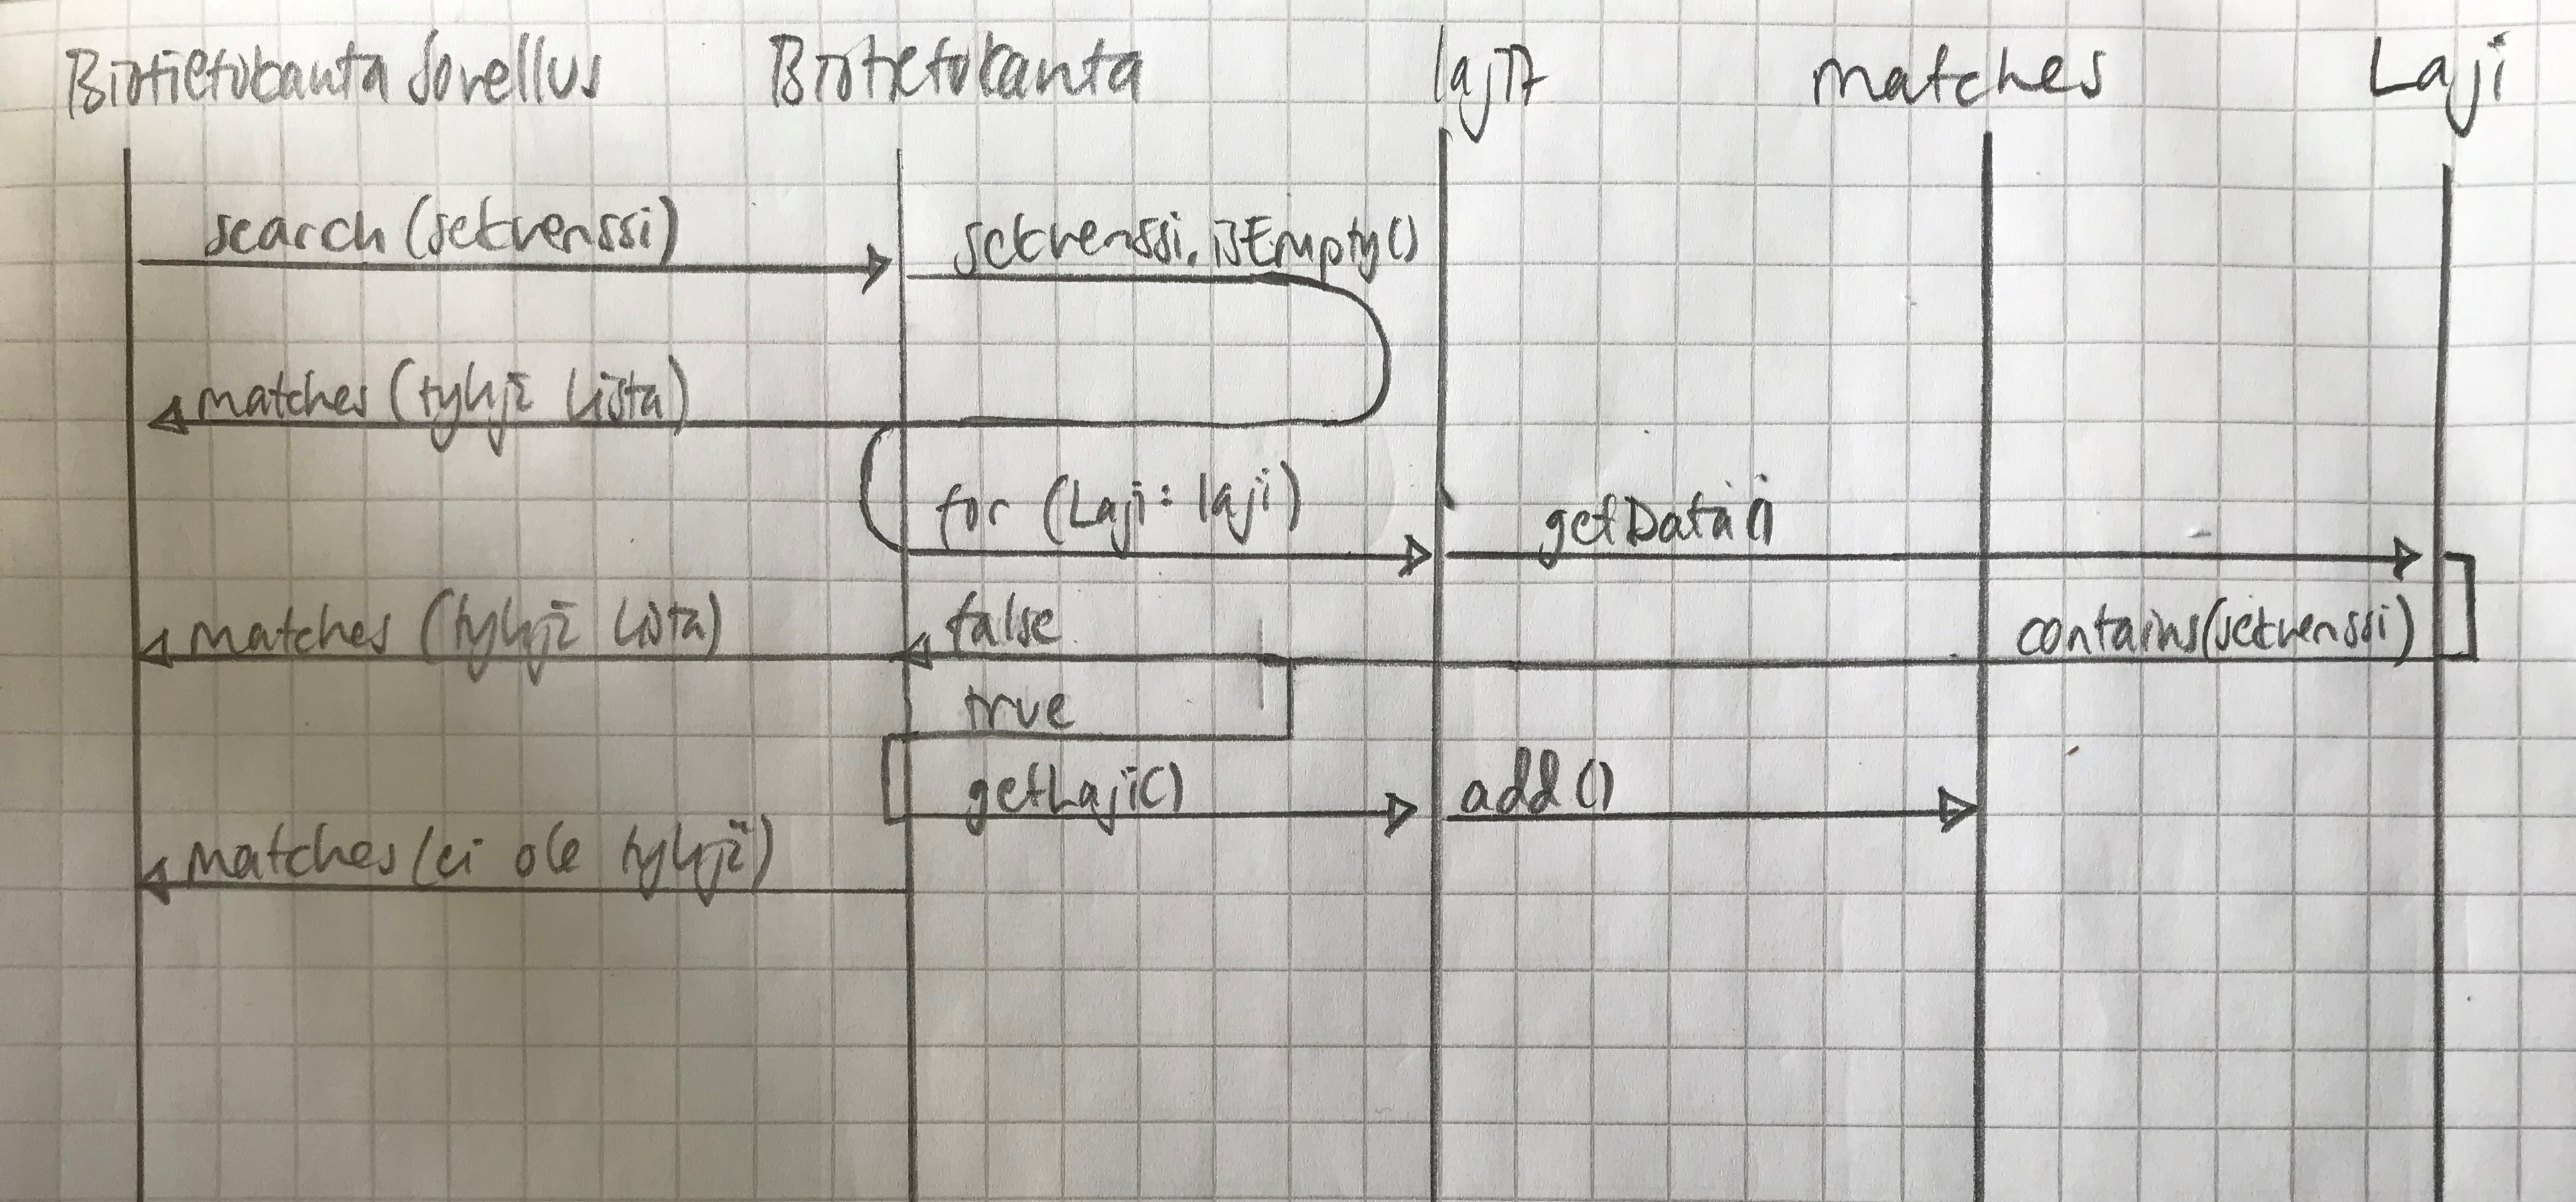 Biotietokanta Sovellus Biotietokanta lajit matches Laji
search (sekvenssi) sekvenssi.isEmpty()
matches (tyhjä lista)
for (Laji: laji) getData()
matches (tyhjä lista) false contains(sekvenssi)
true
getLaji() add()
matches (ei ole tyhjä)